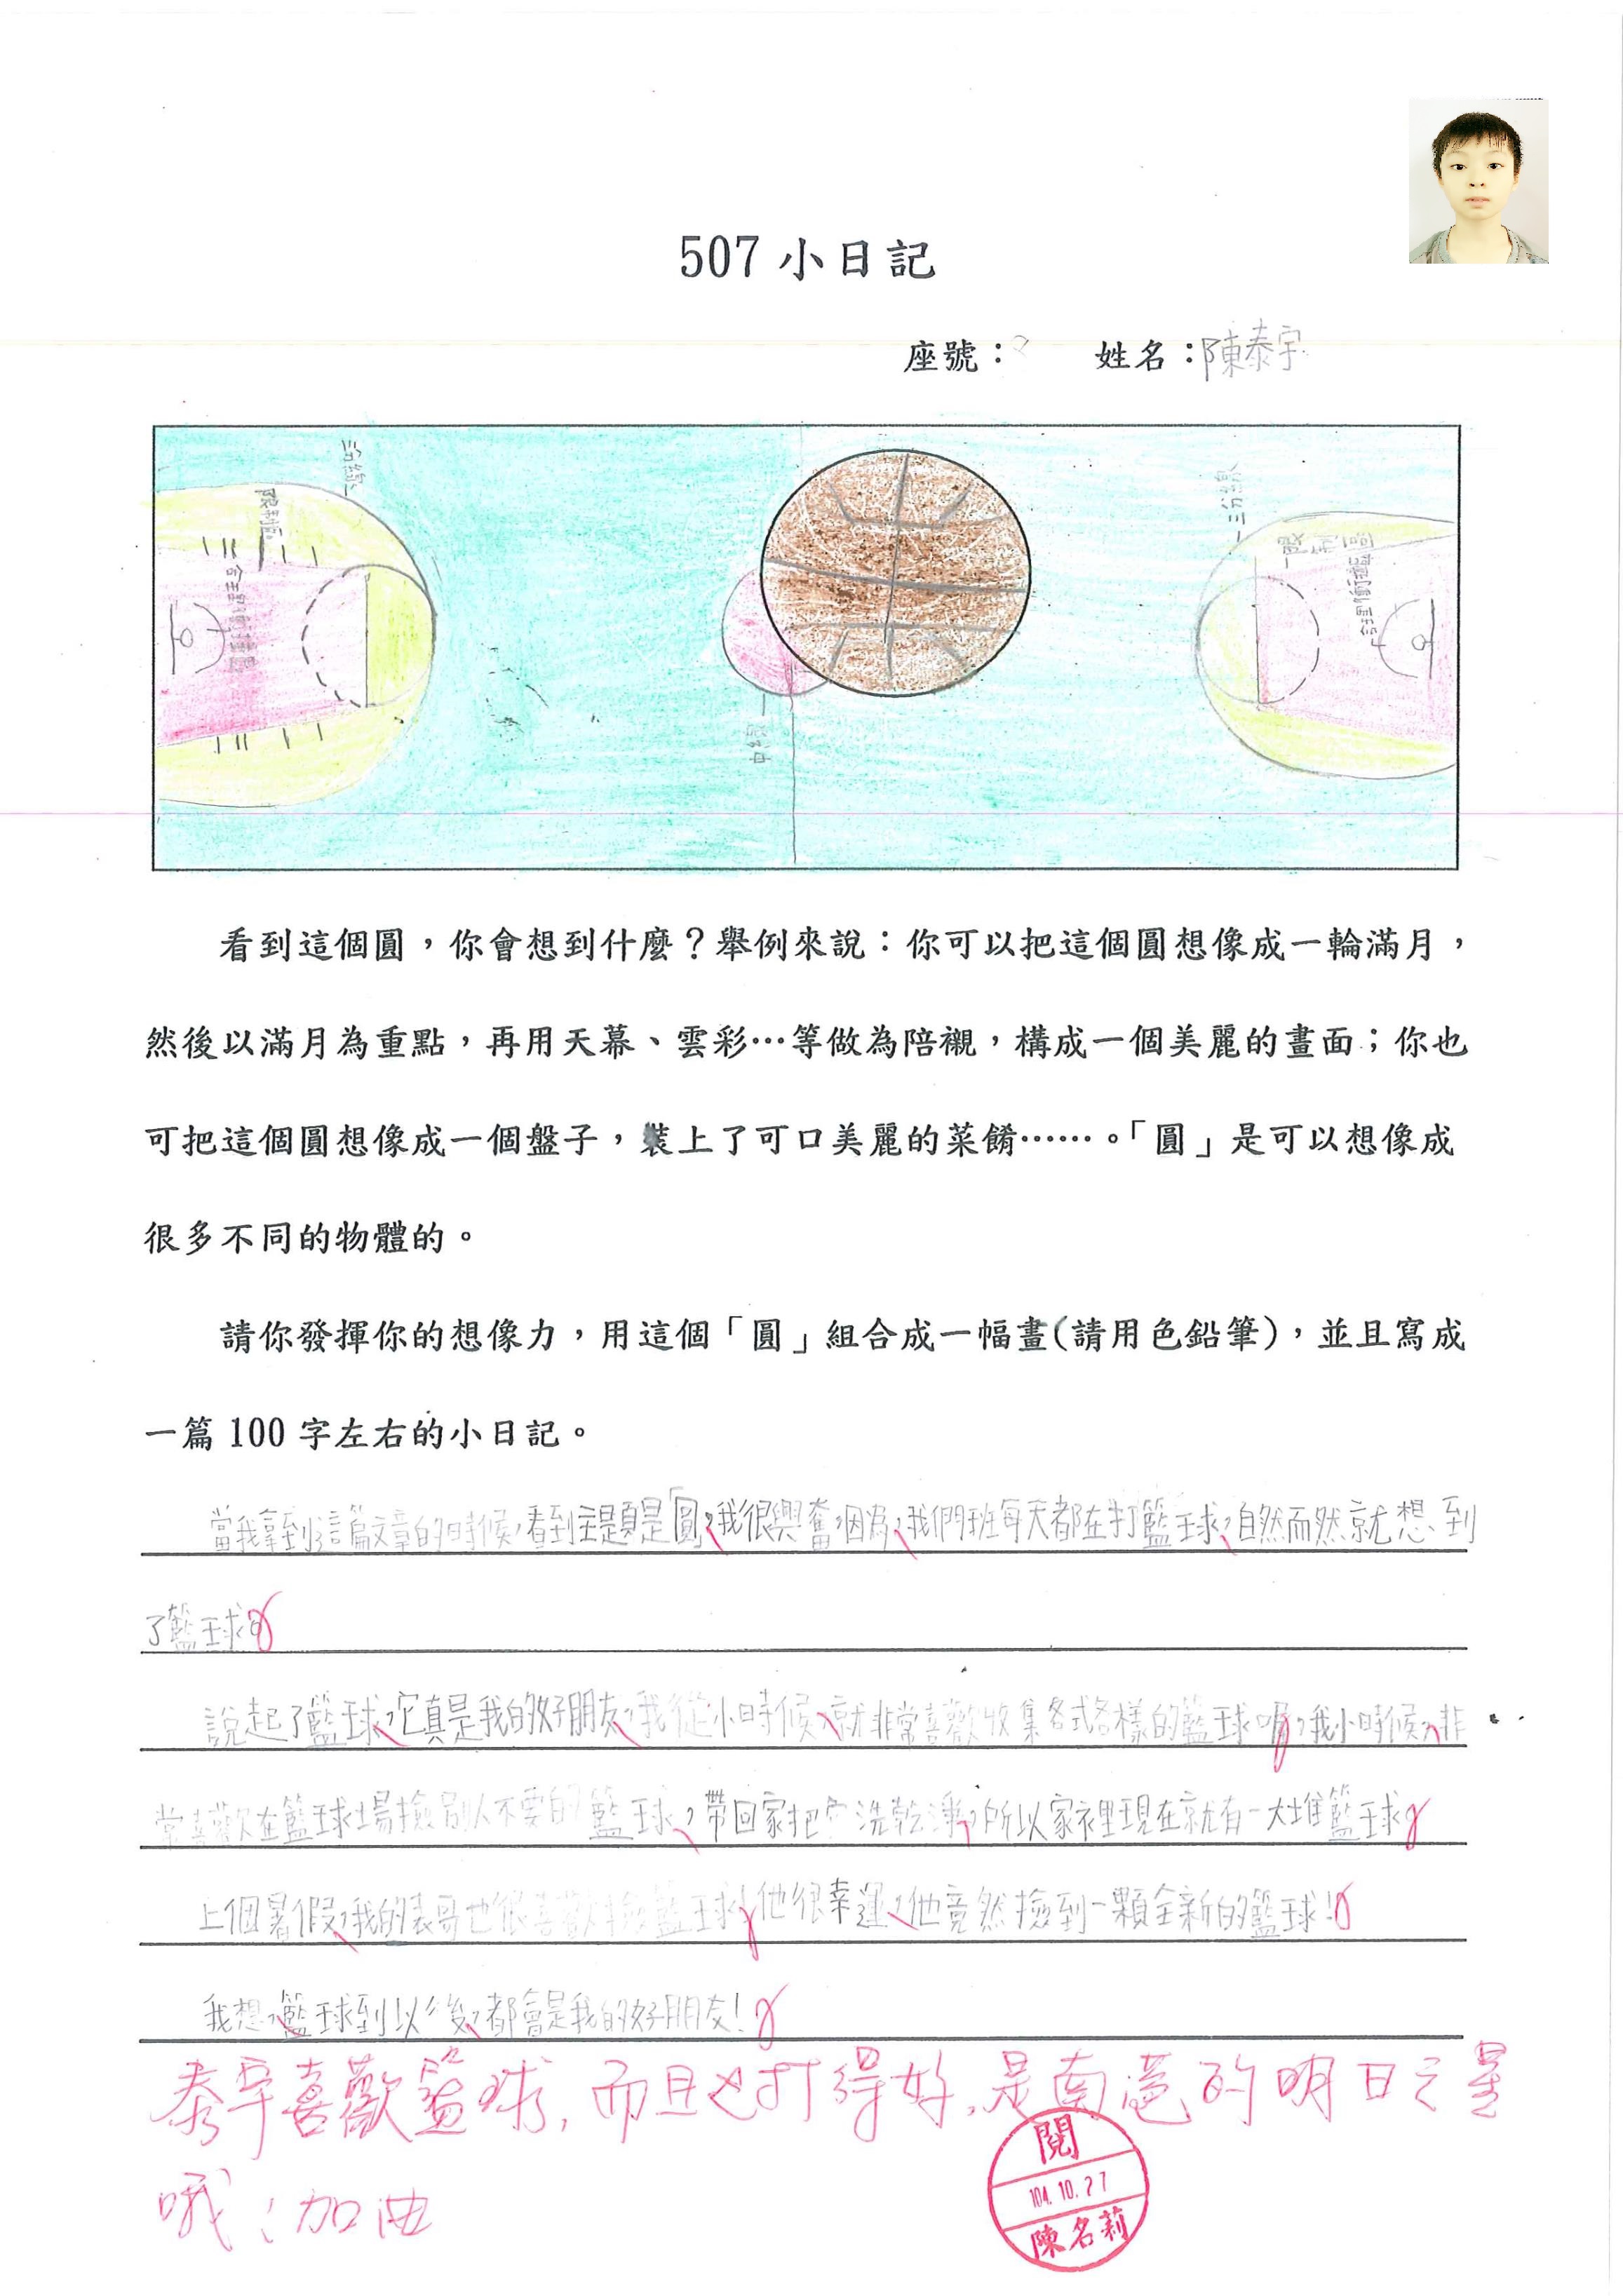 507 小日記
座號： 姓名：陳泰宇
三分線
限制區
合理衝撞區
中線
三分線
限制區
合理衝撞區
看到這個圓，你會想到什麼？舉例來說：你可以把這個圓想像成一輪滿月，
然後以滿月為重點，再用天幕、雲彩…等做為陪襯，構成一個美麗的畫面；你也
可把這個圓想像成一個盤子，裝上了可口美麗的菜餚……。「圓」是可以想像成
很多不同的物體的。
請你發揮你的想像力，用這個「圓」組合成一幅畫(請用色鉛筆)，並且寫成
一篇 100 字左右的小日記。
當我拿到這篇文章的時候，看到主題是「圓」，我很興奮，因為，我們班每天都在打籃球，自然而然就想到
了籃球。
說起了籃球，它真是我的好朋友，我從小時候，就非常喜歡收集各式各樣的籃球喔，我小時候，非
常喜歡在籃球場撿別人不要的籃球，帶回家把它洗乾淨，所以家裡現在就有一大堆籃球。
上個暑假，我的表哥也很喜歡撿籃球！他很幸運，他竟然撿到一顆全新的籃球！
我想，籃球到以後，都會是我的好朋友！
泰宇喜歡籃球，而且也打得好，是南邕的明日之星
哦！加油
閱
104.10.27
陳名莉